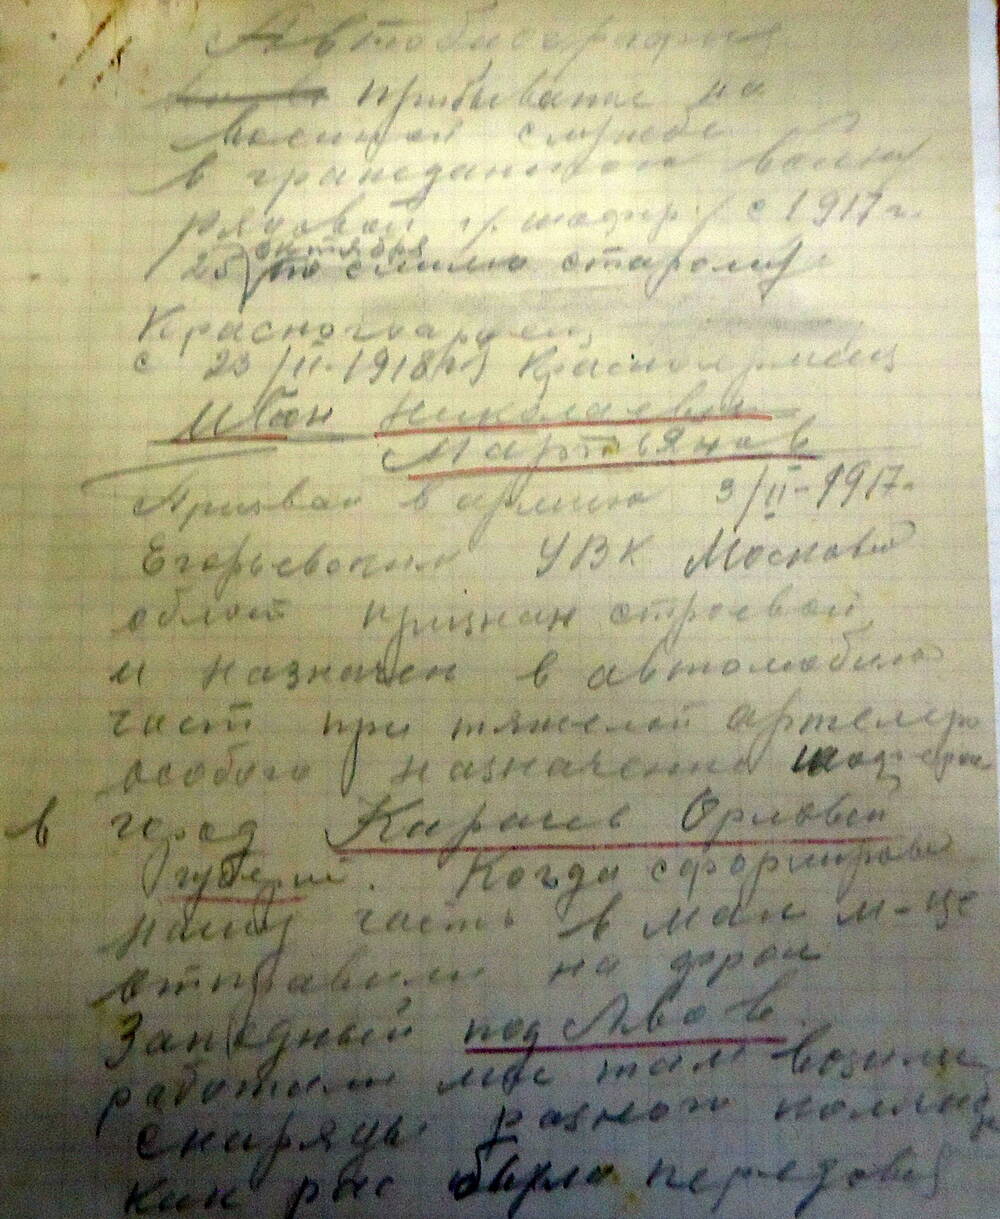 Автобиография
прибывание на
военной службе
в гражданской войны
рядовой /. шофер / с 1917 г.
25) октября по стилю старому
Красногвардеец
с 23/II-1918 г.) Красноармеец
Иван Николаевич
Мартьянов
Призван в армию 3/II-1917.
Егорьевским УВК Московой
област признан строевой
и назначен в автомобильно
част при тяжелой артелери
особого назначение шофером
в город Карачев Орловй
губерний. Когда сформировали
нашу часть в мая м-це
отправили на фрон
Западный под Львов.
работали мы там возили
снаряды разного
как рас было передовая